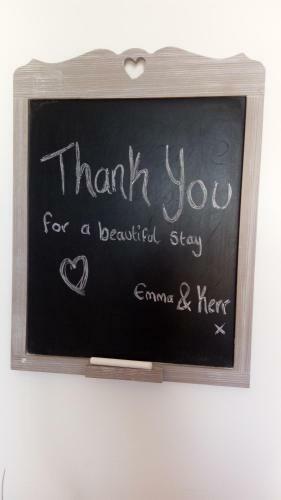 Thank You
for a beautiful stay
Emma & Kerr
x